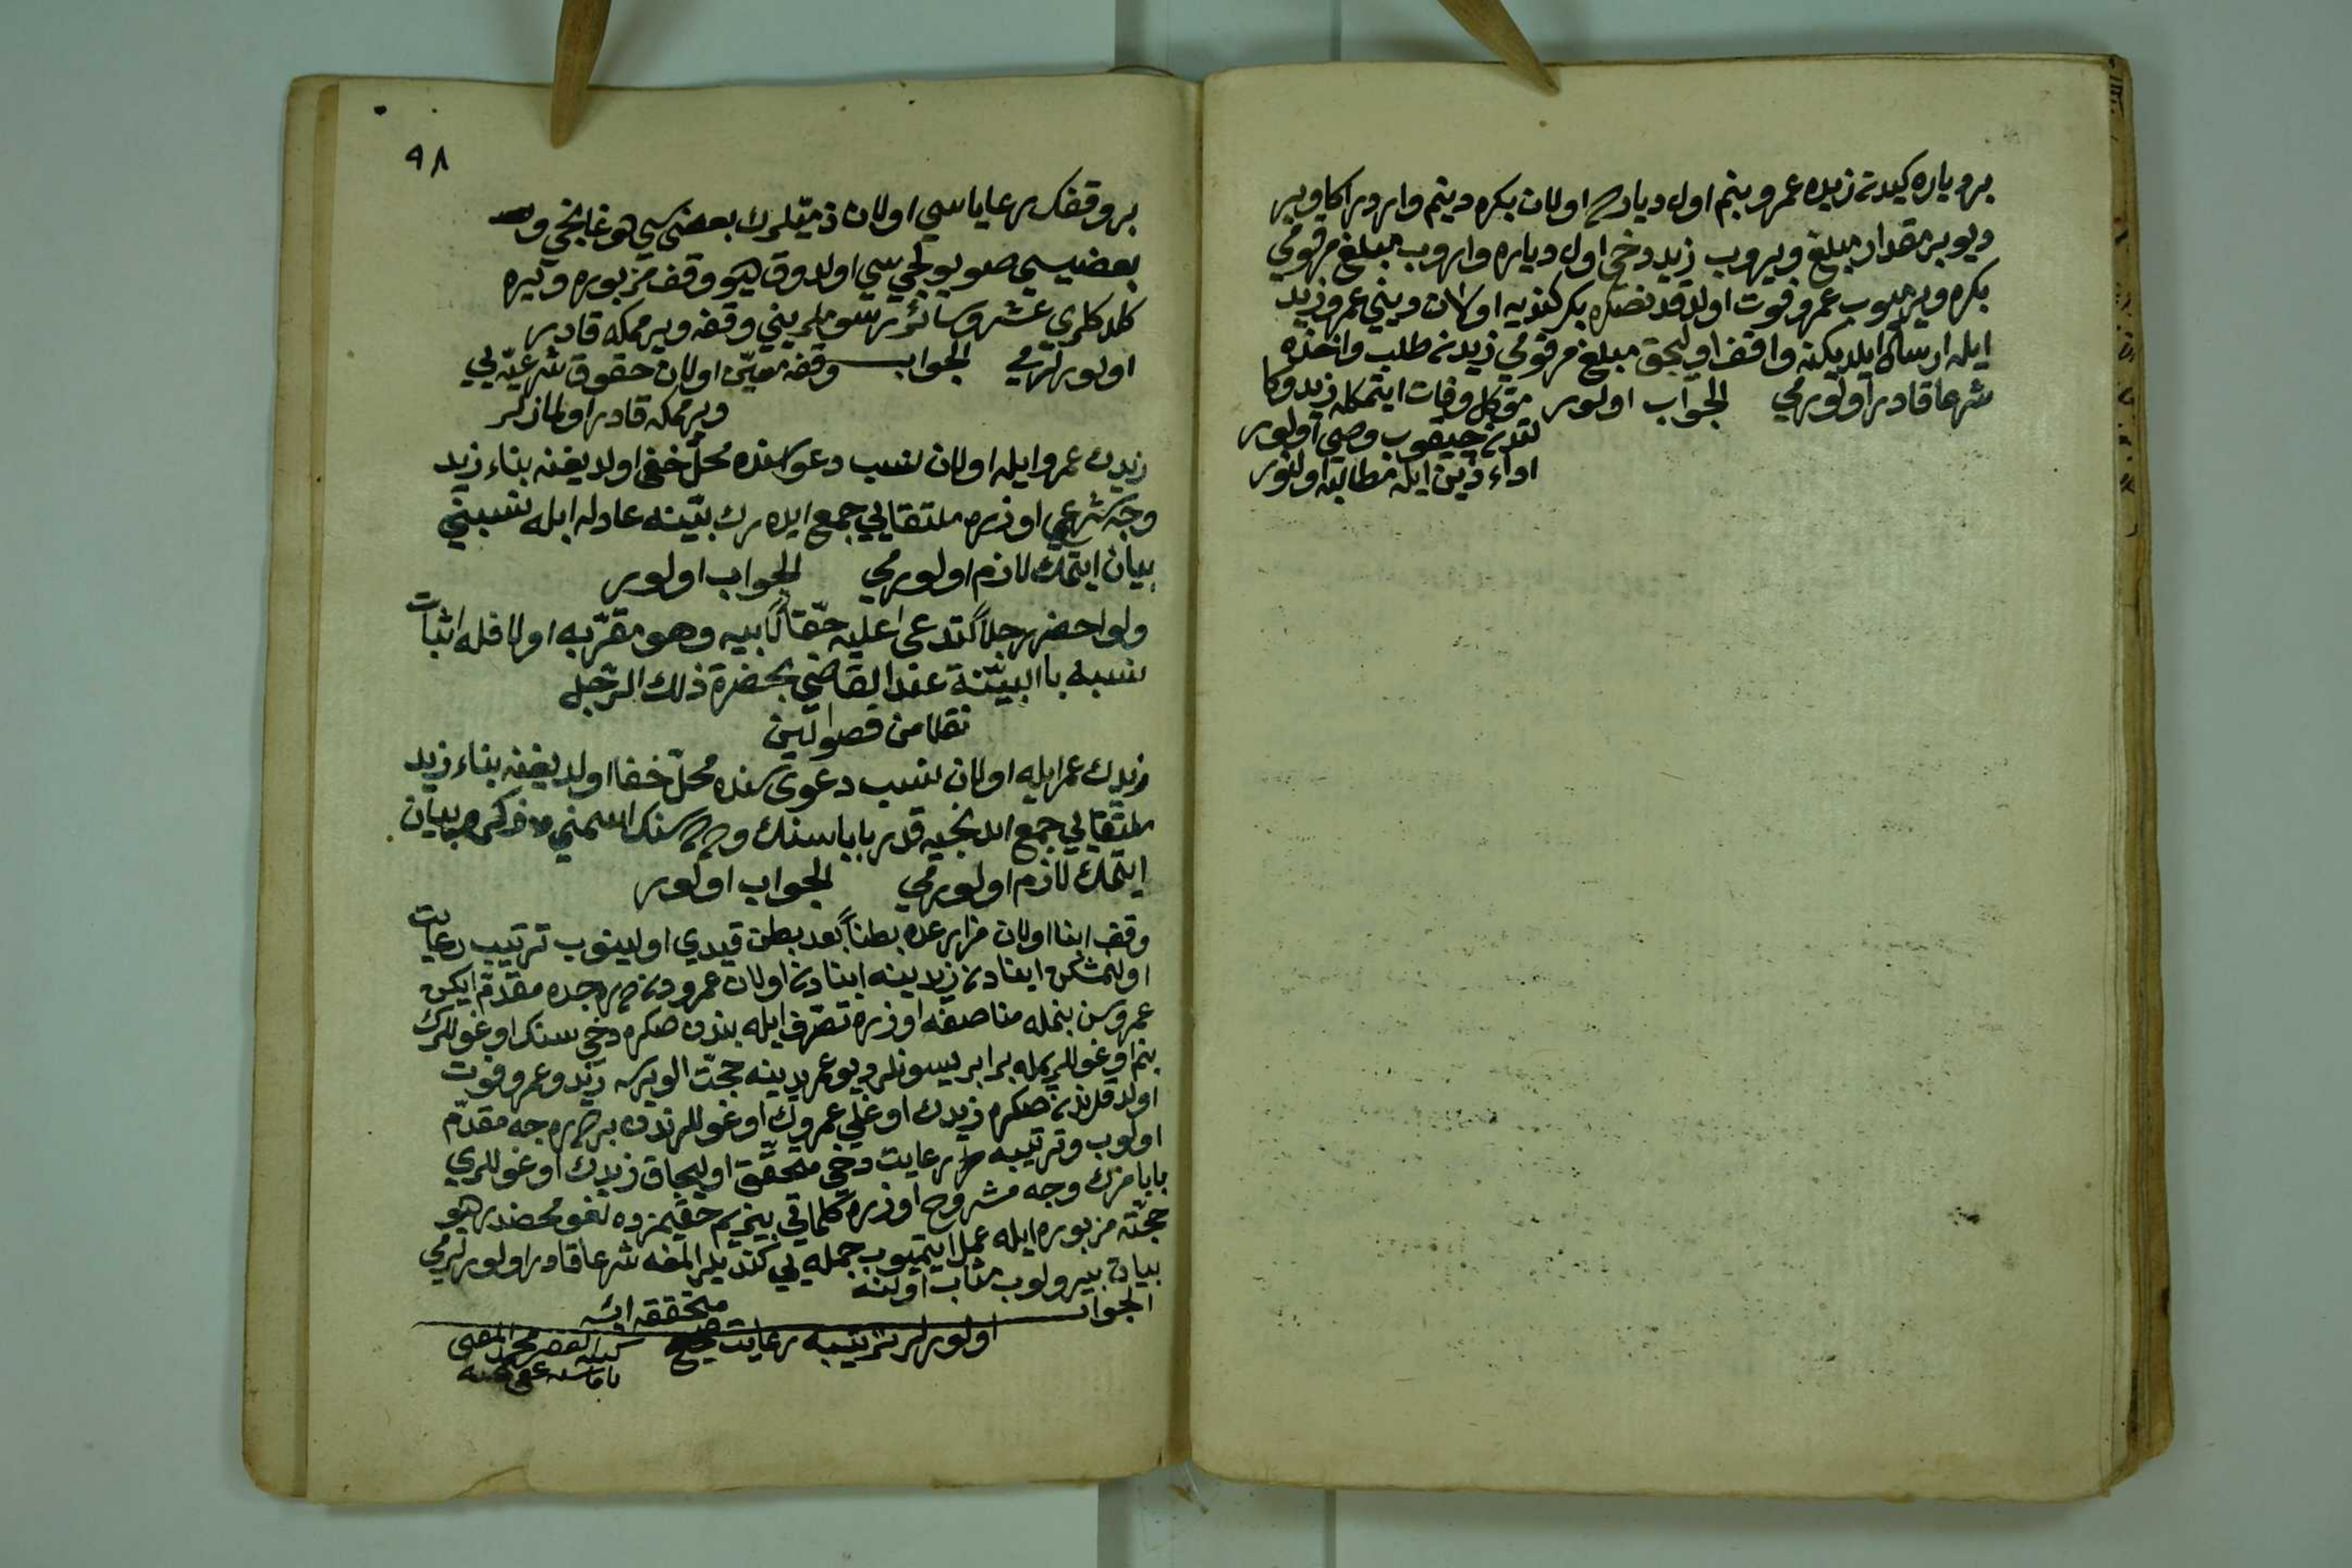 بر دياره كيدن زيده عمرو بنم اول دياردە اولان بكره دينم واردر اكا وير
ديو بر مقدار مبلغ ويروب زيد دخى اول دياره واروب مبلغ مرقومي
بكره ويرميوب عمرو فوت اولدقدنصكره بكر كنديه اولان ديني عمرو زيد
ايله ارسال ايلديكنه واقف اوليجق مبلغ مرقومي زيدن طلب واخذه
شرعا قادر اولورمي الجواب اولور موكل وفات ايتمكله زيد وكا
لتدن چيقوب وصي اولور
اداء دين ايله مطالبه اولنور
٩٨
بر وقفك رعاياسي اولان ذميلرك بعضيسي هوغانجي و
بعضيسي صويولجي سي اولدوق ديو وقف مزبوره ويره
كلدكلري عشر وسائر رسوملريني وقفه ويرممكه قادر
اولورلرمي الجواب وقفه معين اولان حقوق شرعيه يي
ويرممكه قادر اولمازلر
زيدك عمرو ايله اولان نسب دعواسنده محل خفى اولديغنه بناء زيد
وجه شرعي اوزره ملتقايي جمع ايدەرك بينه عادله ايله نسبني
بيان ايتمك لازم اولورمي الجواب اولور
ولو احضر رجلاً ليدعى عليه حقاً لابيه وهو مقر به اولا فله اثبات
نسبه باالبينة عند القاضي بحضرة ذلك الرجل
نقلا من فصولين
زيدك عمر ايله اولان نسب دعوى سنده محل خفا اولديغنه بناء زيد
ملتقايي جمع ايدنجيه قدر باباسنك و سنك اسمني ذكر وبيان
ايتمك لازم اولورمي الجواب اولور
وقف ابنا اولان مزارعده بطناً بعد بطن قيدي اولينوب ترتيب رعايت
اولنمشكن ابنادن زيد ينه ابنادن اولان عمرودن درجده مقدم ايكن
عمرو سن بنمله مناصفه اوزره تصرف ايله بندن صكره دخى سنك اوغوللرك
بنم اوغوللريمله برابر يسونلر ديو عمر يدينه حجت الويرسه زيد و عمرو فوت
اولدقلرندن صكره زيدك اوغلي عمروك اوغوللرندن بر درجه مقدم
اولوب و ترتيبه رعايت دخى متحقق اوليجاق زيدك اوغوللري
بابامزك وجه مشروح اوزره كلماتي بيزيم حقيمزده لغو محضدر ديو
حجت مزبوره ايله عمل ايتميوب جمله يي كنديلر المغه شرعا قادر اولورلرمي
بيان بيرولوب مثاب اولنه
الجواب اولورلر ترتيبه رعايت متحققه ايسه
كتبه الفقير محمد المفتى
عفى عنه